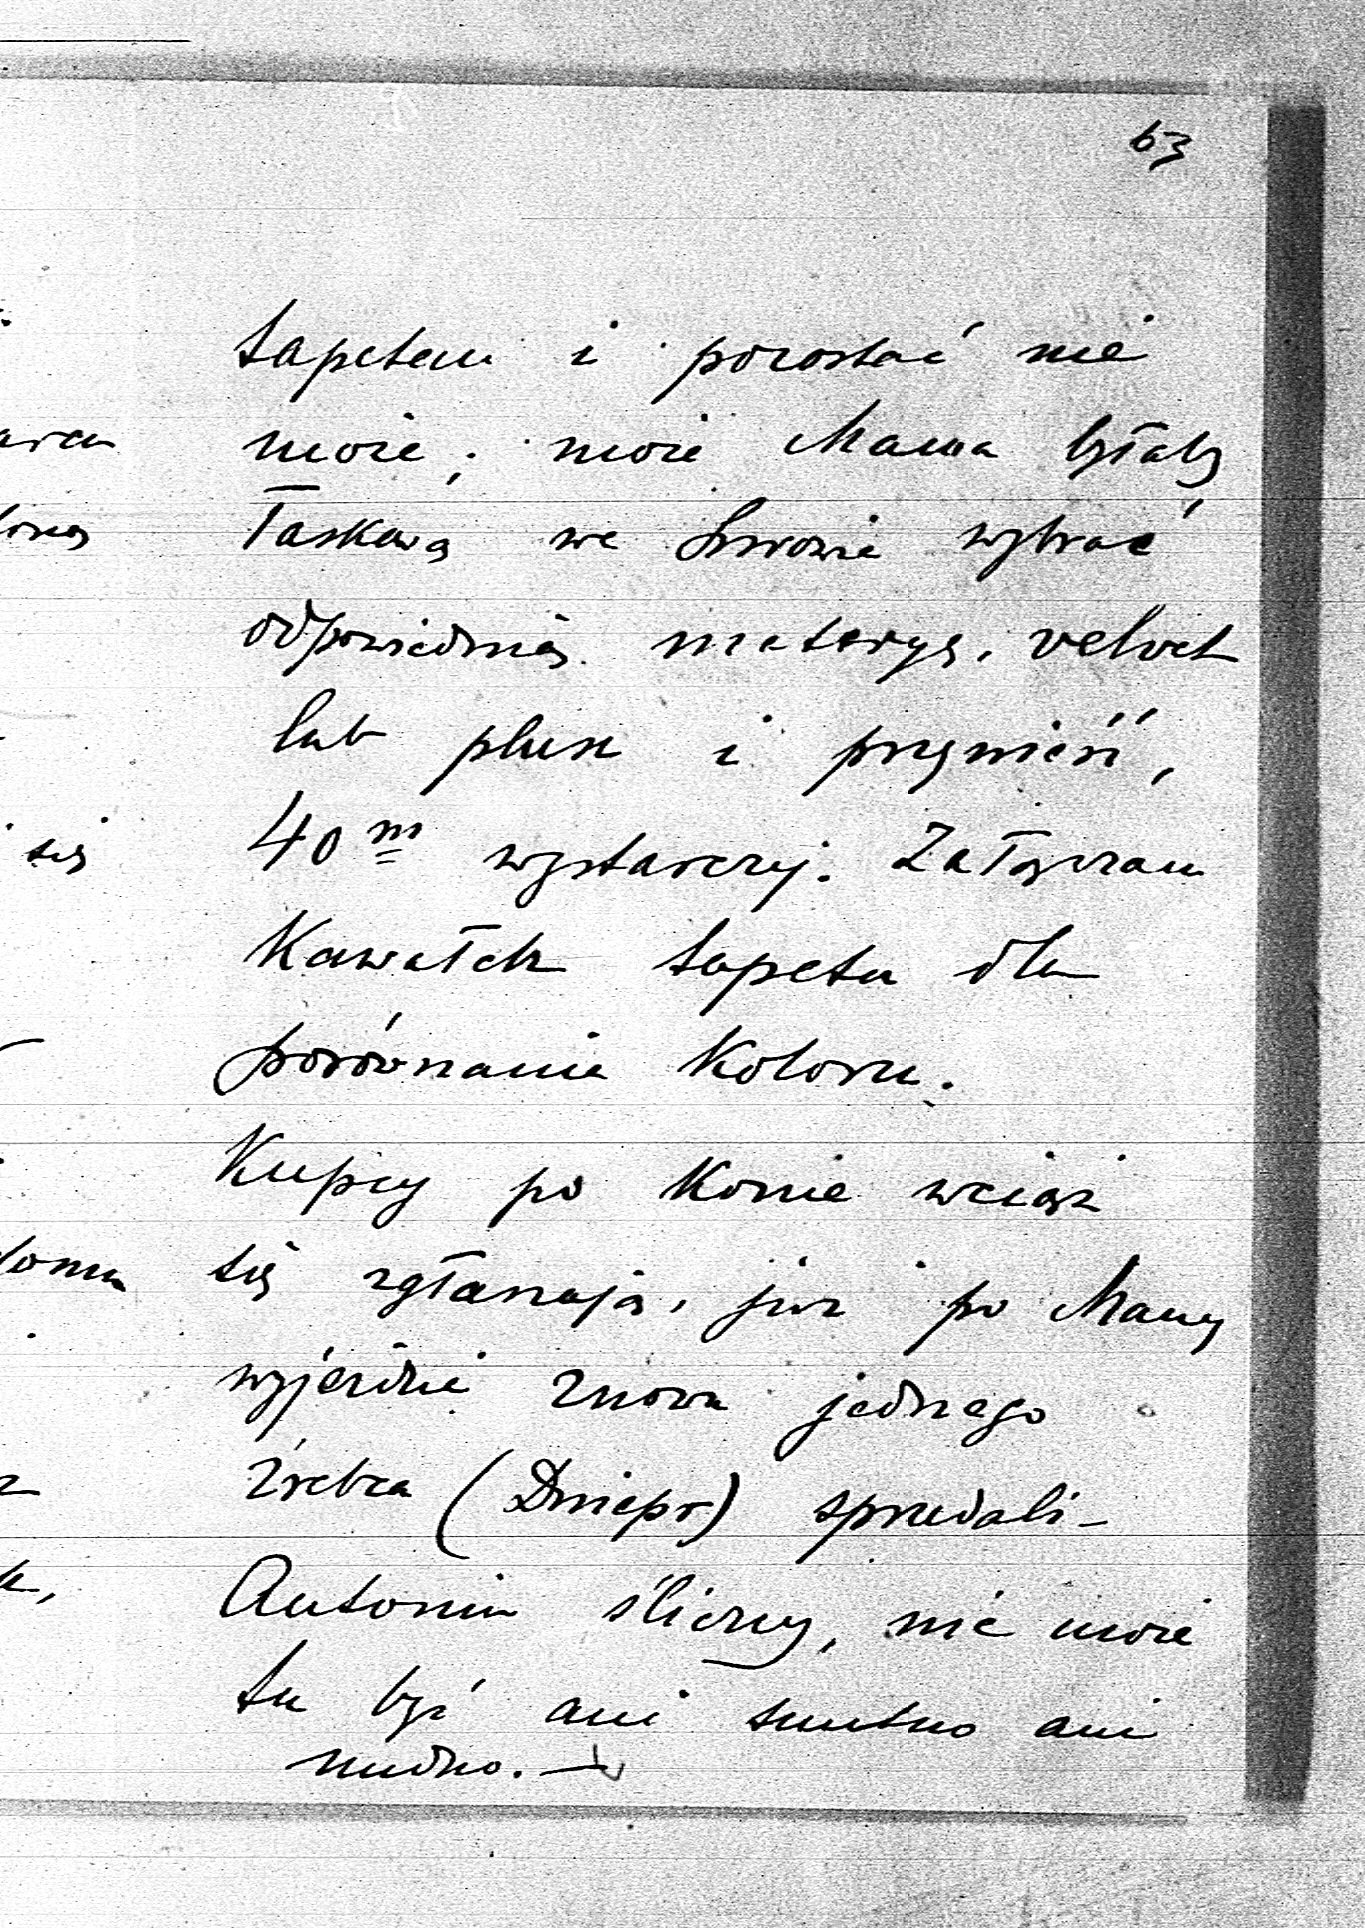 63
tapetem i pozostać nie
może; może Mama byłaby
łaskawą we Lwowie wybrać
odpowiednią materyę, velvet
lub plusz i przynieść,
40 m wystarczy. Załączam
kawałek tapetu dla
porównania koloru.
Kupcy po konie wciąż
się zgłaszają, już po Mamy
wyjeździe znowu jednego
źrebca (Dniepr) sprzedali–
Antonin śliczny, nie może
tu być ani smutno ani
nudno. —
arcu
się
domu